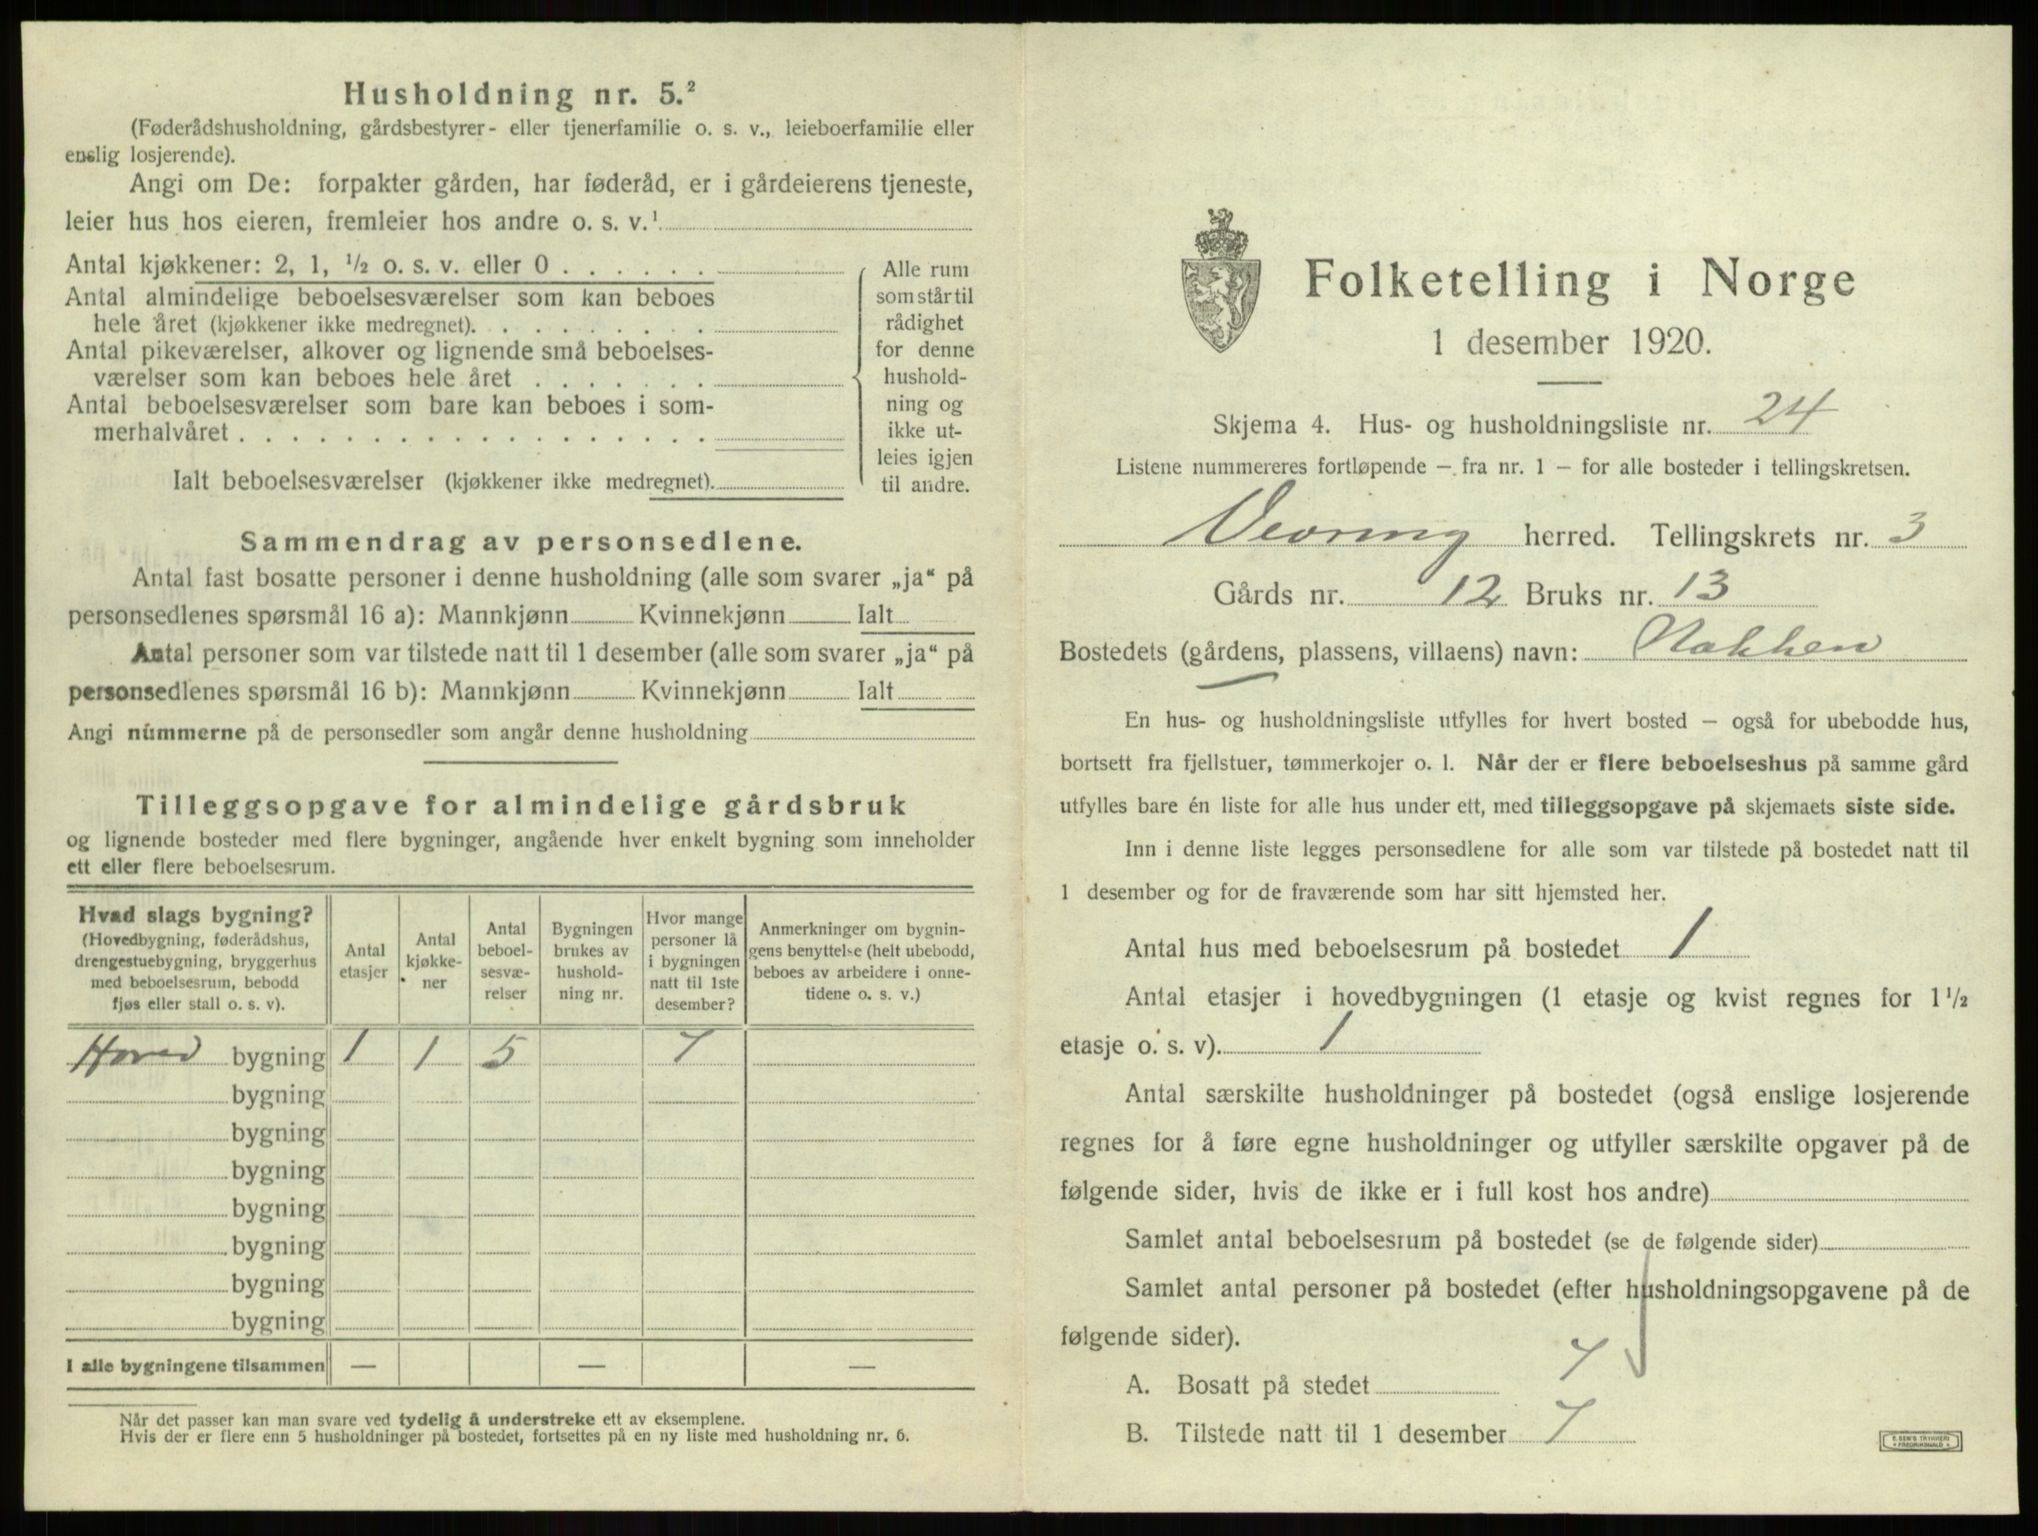 Husholdning nr. 5.²
(Føderådshusholdning, gårdsbestyrer- eller tjenerfamilie o. s. v., leieboerfamilie eller
enslig losjerende).
Angi om De: forpakter gården, har føderåd, er i gårdeierens tjeneste,
leier hus hos eieren, fremleier hos andre o. s. v.¹
Antal kjøkkener: 2, 1, ½ o. s. v. eller 0 . . . . . .
Antal almindelige beboelsesværelser som kan beboes
hele året (kjøkkener ikke medregnet). . . . . . . . .
Antal pikeværelser, alkover og lignende små beboelses-
værelser som kan beboes hele året . . . . . . .
Antal beboelsesværelser som bare kan beboes i som-
merhalvåret . . . . . . . . . . . . . . . . . .
Ialt beboelsesværelser (kjøkkener ikke medregnet).
Alle rum
som står til
rådighet
for denne
hushold-
ning og
ikke ut-
leies igjen
til andre.
Sammendrag av personsedlene.
Antal fast bosatte personer i denne husholdning (alle som svarer „ja“ på
personsedlenes spørsmål 16 a): Mannkjønn Kvinnekjønn Ialt
Antal personer som var tilstede natt til 1 desember (alle som svarer „ja“ på
personsedlenes spørsmål 16 b): Mannkjønn Kvinnekjønn Ialt
Angi nummerne på de personsedler som angår denne husholdning
Tilleggsopgave for almindelige gårdsbruk
og lignende bosteder med flere bygninger, angående hver enkelt bygning som inneholder
ett eller flere beboelsesrum.
Hvad slags bygning?
(Hovedbygning, føderådshus,
drengestuebygning, bryggerhus
med beboelsesrum, bebodd
fjøs eller stall o. s. v).
Antal
etasjer
Antal
kjøkke-
ner
Antal
beboel-
sesvæ-
relser
Bygningen
brukes av
hushold-
ning nr.
Hvor mange
personer lå
i bygningen
natt til 1ste
desember?
Anmerkninger om bygnin-
gens benyttelse (helt ubebodd,
beboes av arbeidere i onne-
tidene o. s. v.)
Hoved bygning 1 1 5 7
bygning
bygning
bygning
bygning
bygning
bygning
bygning
I alle bygningene tilsammen — — —
Når det passer kan man svare ved tydelig å understreke ett av eksemplene.
Hvis der er flere enn 5 husholdninger på bostedet, fortsettes på en ny liste med husholdning nr. 6.
Folketelling i Norge
1 desember 1920.
Skjema 4. Hus- og husholdningsliste nr. 24
Listene nummereres fortløpende – fra nr. 1 – for alle bosteder i tellingskretsen.
Vevring herred. Tellingskrets nr. 3
Gårds nr. 12 Bruks nr. 13
Bostedets (gårdens, plassens, villaens) navn: Nakken
En hus- og husholdningsliste utfylles for hvert bosted – også for ubebodde hus,
bortsett fra fjellstuer, tømmerkojer o. l. Når der er flere beboelseshus på samme gård
utfylles bare én liste for alle hus under ett, med tilleggsopgave på skjemaets siste side.
Inn i denne liste legges personsedlene for alle som var tilstede på bostedet natt til
1 desember og for de fraværende som har sitt hjemsted her.
Antal hus med beboelsesrum på bostedet 1
Antal etasjer i hovedbygningen (1 etasje og kvist regnes for 1 ½
etasje o. s. v). 1
Antal særskilte husholdninger på bostedet (også enslige losjerende
regnes for å føre egne husholdninger og utfyller særskilte opgaver på de
følgende sider, hvis de ikke er i full kost hos andre)
Samlet antal beboelsesrum på bostedet (se de følgende sider)
Samlet antal personer på bostedet (efter husholdningsopgavene på de
følgende sider).
A. Bosatt på stedet 7
B. Tilstede natt til 1 desember 7